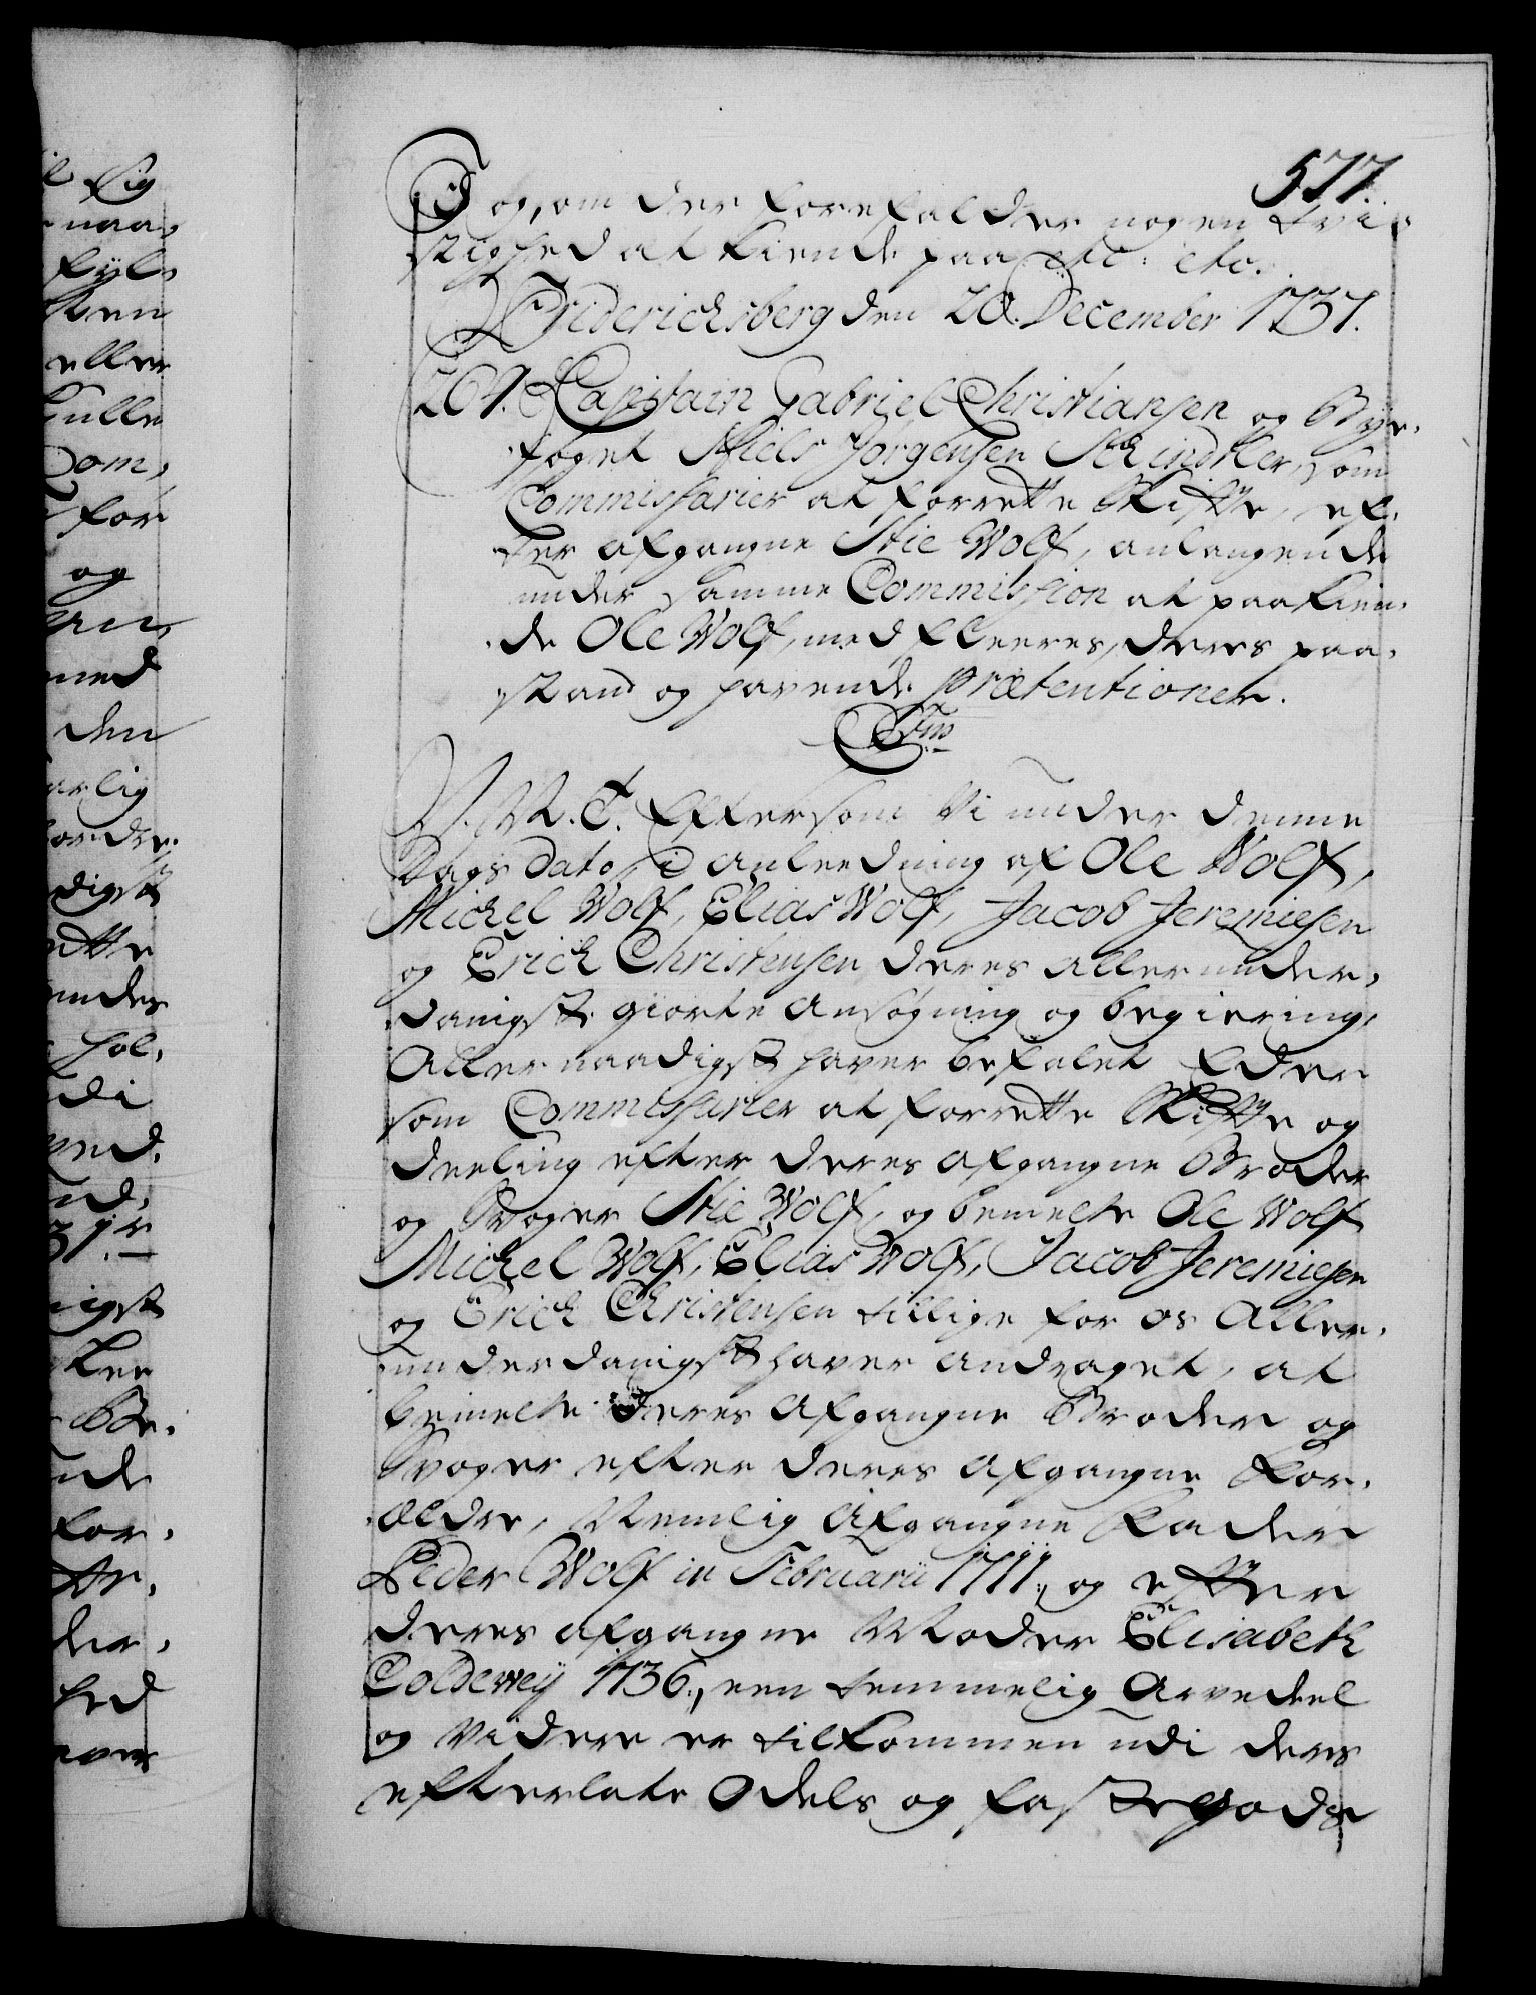 577.
Og, om der forefalder nogen tvi-
stighed at kiende paa etc: etc.
Friderichsberg den 20. December 1737.
209. Capitain Gabriel Christiansen og Bye-
foget Niels Jørgensen Schindtler, som
Commissarier at forrette Skifte, ef-
ter afgangne Stie Wolf, anlangende
under samme Commission at paakien-
de Ole Wolf, med fleeres, deres paa-
stand og havende Prætentioner.
C. 6. Eftersom Vi under denne
Dags Dato, i anleedning af Ole Wolf,
Michel Wolf, Elias Wolf, Jacob Jeremiesen
og Erich Christensen deres allerunder-
danigst giorte ansøgning og begiering,
Allernaadigst haver befalet Eder
som Commissarier at forrette Skifte og
deeling efter deres afgangne Broder
og Svoger Stie Wolf, og bemelte Ole Wolf
Michel Wolf, Elias Wolf, Jacob Jeremiesen
og Erich Christensen tillige for os Aller-
underdanigst haver andraget, at
bemelte deres afgangne Broder og
Svoger efter deres afgangne For-
ældre, Nemlig Afgangne Fader
Peder Wolf in Februarii 1711., og efter
deres afgangne Moder Elisabeth
Coldeweij 1736., een temmelig Arvedeel
og videre er tilkommen udi deres
efterlatte Odels og faste gods